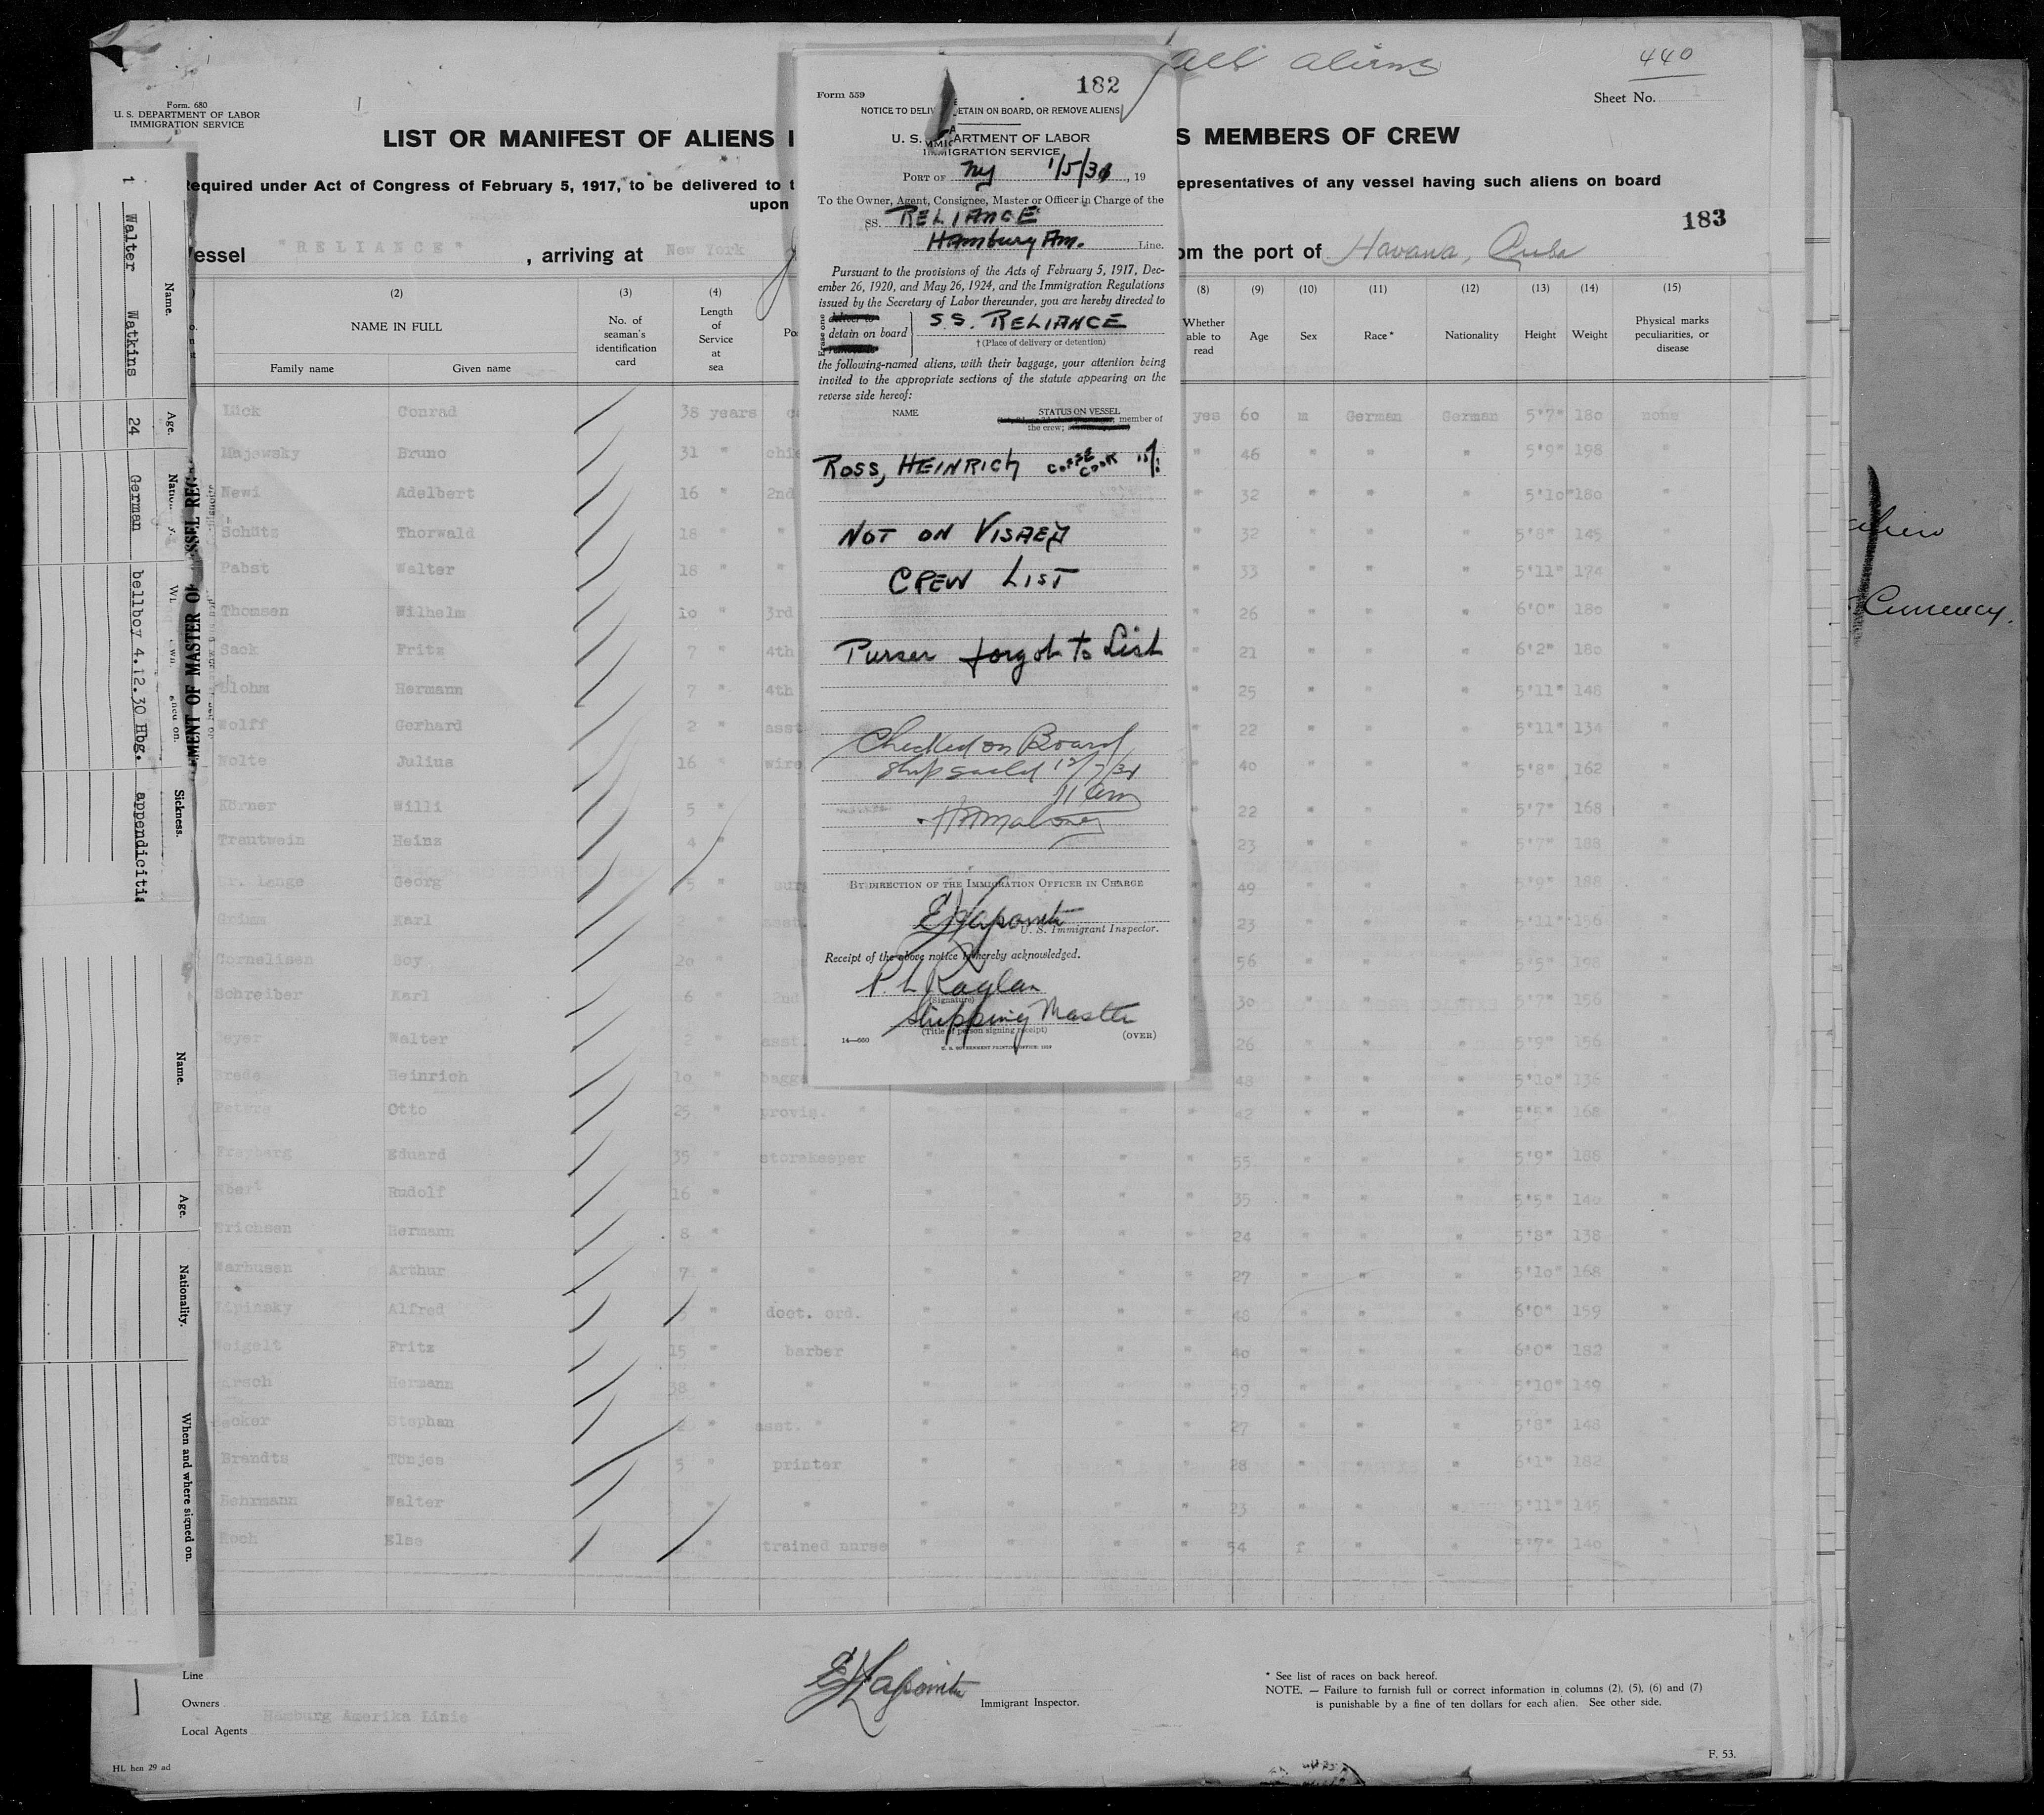 all aliens
440
Sheet No.
Form. 680
U. S. DEPARTMENT OF LABOR
IMMIGRATION SERVICE
LIST OR MANIFEST OF ALIENS
S MEMBERS OF CREW
equired under Act of Congress of February 5, 1917, to be delivered to t
epresentatives of any vessel having such aliens on board
upon
183
essel "RELIANCE", arriving at New York
om the port of Havana, Cuba
(2) (3) (4) (8) (9) (10) (11) (12) (13) (14) (15)
NAME IN FULL
Family name Given name
No. of seaman's identification card
Length of Service at sea
Whether able to read
Age
Sex
Race*
Nationality
Height
Weight
Physical marks peculiarities, or disease
Lück Conrad 38 years yes 60 m German German 5'7" 180 none
Majewsky Bruno 31 " 46 " " " 5'9" 198 "
Newi Adelbert 16 " 2nd " 32 " " " 5'10" 180 "
Schütz Thorwald 18 " " " 32 " " " 5'8" 145 "
Pabst Walter 18 " " " 33 " " " 5'11" 174 "
Thomsen Wilhelm 10 " 3rd " 26 " " " 6'0" 180 "
Sack Fritz 7 " 4th " 21 " " " 6'2" 180 "
Blohm Hermann 7 " 4th " 25 " " " 5'11" 148 "
Wolff Gerhard 2 " asst " 22 " " " 5'11" 134 "
Nolte Julius 16 " wire " 40 " " " 5'8" 162 "
Körner Willi 5 " " 22 " " " 5'7" 168 "
Trautwein Heinz 4 " " 23 " " " 5'7" 188 "
Dr. Lange Georg 5 " sur " 49 " " " 5'9" 188 "
Grimm Karl 2 " asst. " 23 " " " 5'11" 156 "
Cornelisen Boy 20 " " 56 " " "
Schreiber Karl 6 " 2nd " 30 " " " 5'7" 156 "
Walter 2 " asst. " 26 " " " 5'9" 156 "
Brede Heinrich 10 " bagga " 48 " " " 5'10" 136 "
Peters Otto 25 " provis. " " " " " 42 " " " 5'5" 168 "
Freyberg Eduard 35 " storekeeper " " " " 55 " " " 5'9" 188 "
Rudolf 16 " " " " " " 35 " " " 5'5" 140 "
Erichsen Hermann 8 " " " " " " 24 " " " 5'8" 138 "
Warhusen Arthur 7 " " " " " " 27 " " " 5'10" 168 "
Alfred " doct. ord. " " " " 48 " " " 6'0" 159 "
Weigelt Fritz 15 " barber " " " " 40 " " " 6'0" 182 "
Hermann 38 " " " " " " 59 " " " 5'10" 149 "
Becker Stephan " asst. " " " " " 27 " " " 5'8" 148 "
Brandts Tönjes 5 " printer " " " " 28 " " " 6'1" 182 "
Hehrmann Walter " " " " " " 23 " " " 5'11" 145 "
Koch Else " trained nurse " " " " 54 f " " 5'7" 140 "
Line
Owners
Hamburg Amerika Linie
Local Agents
HL hen 29 ad
E Lapointe
Immigrant Inspector.
* See list of races on back hereof.
NOTE. — Failure to furnish full or correct information in columns (2), (5), (6) and (7)
is punishable by a fine of ten dollars for each alien. See other side.
F. 53.
182
Form 559
NOTICE TO DELIV ETAIN ON BOARD, OR REMOVE ALIENS
U. S. ARTMENT OF LABOR
IMMIGRATION SERVICE
PORT OF NY 1/5/31, 19
To the Owner, Agent, Consignee, Master or Officer in Charge of the
SS. RELIANCE
Hamburg Am. Line.
Pursuant to the provisions of the Acts of February 5, 1917, Dec-
ember 26, 1920, and May 26, 1924, and the Immigration Regulations
issued by the Secretary of Labor thereunder, you are hereby directed to
Erase one
deliver to
detain on board
remove to
S.S. RELIANCE
† (Place of delivery or detention)
the following-named aliens, with their baggage, your attention being
invited to the appropriate sections of the statute appearing on the
reverse side hereof:
NAME STATUS ON VESSEL
member of
the crew;
ROSS, HEINRICH COFFE COOK
NOT ON VISAED
CREW LIST
Purser forgot to List
Checked on Board
Ship sailed
11 am
H Maloney
BY DIRECTION OF THE IMMIGRATION OFFICER IN CHARGE
E Lapointe
U. S. Immigrant Inspector.
Receipt of the above notice is hereby acknowledged.
P. L Raglan
(Signature)
Shipping Master
(Title of person signing receipt)
14—660
U. S. GOVERNMENT PRINTING OFFICE: 1929
(OVER)
Name. Age. Sickness.
1 Walter Watkins 24 German bellboy 4.12.30 Hbg. appendicitis
MENT OF MASTER OF
SSEL REG
Name. Age. Nationality. When and where signed on.
Currency.